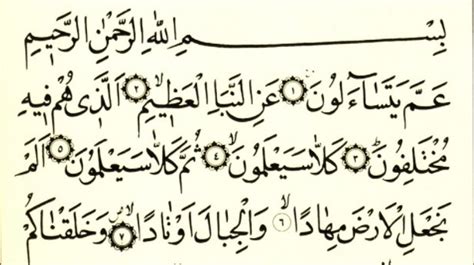 بِسْمِ اللهِ الرَّحْمٰنِ الرَّحِيْمِ
عَمَّ يَتَسَآءَلُوْنَ ۝١ عَنِ النَّبَاِ الْعَظِيْمِۙ ۝٢ الَّذِىْ هُمْ فِيْهِ
مُخْتَلِفُوْنَؕ ۝٣ كَلَّا سَيَعْلَمُوْنَۙ ۝٤ ثُمَّ كَلَّا سَيَعْلَمُوْنَ ۝٥ اَلَمْ
نَجْعَلِ الْاَرْضَ مِهَادًاۙ ۝٦ وَّالْجِبَالَ اَوْتَادًاۙ ۝٧ وَّخَلَقْنٰكُمْ